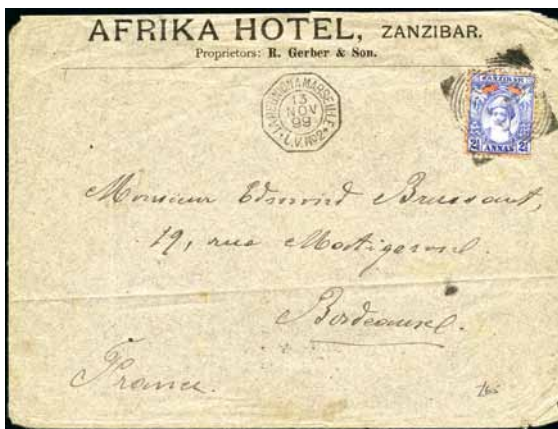 AFRIKA HOTEL, ZANZIBAR.
Proprietors: R. Gerber & Son.
LA REUNION A MARSEILLE
13
NOV
99
L.V. No2
ZANZIBAR
2½ 2½
ANNAS
Monsieur Edmond Brussaut,
19, rue
Bordeaux.
France.